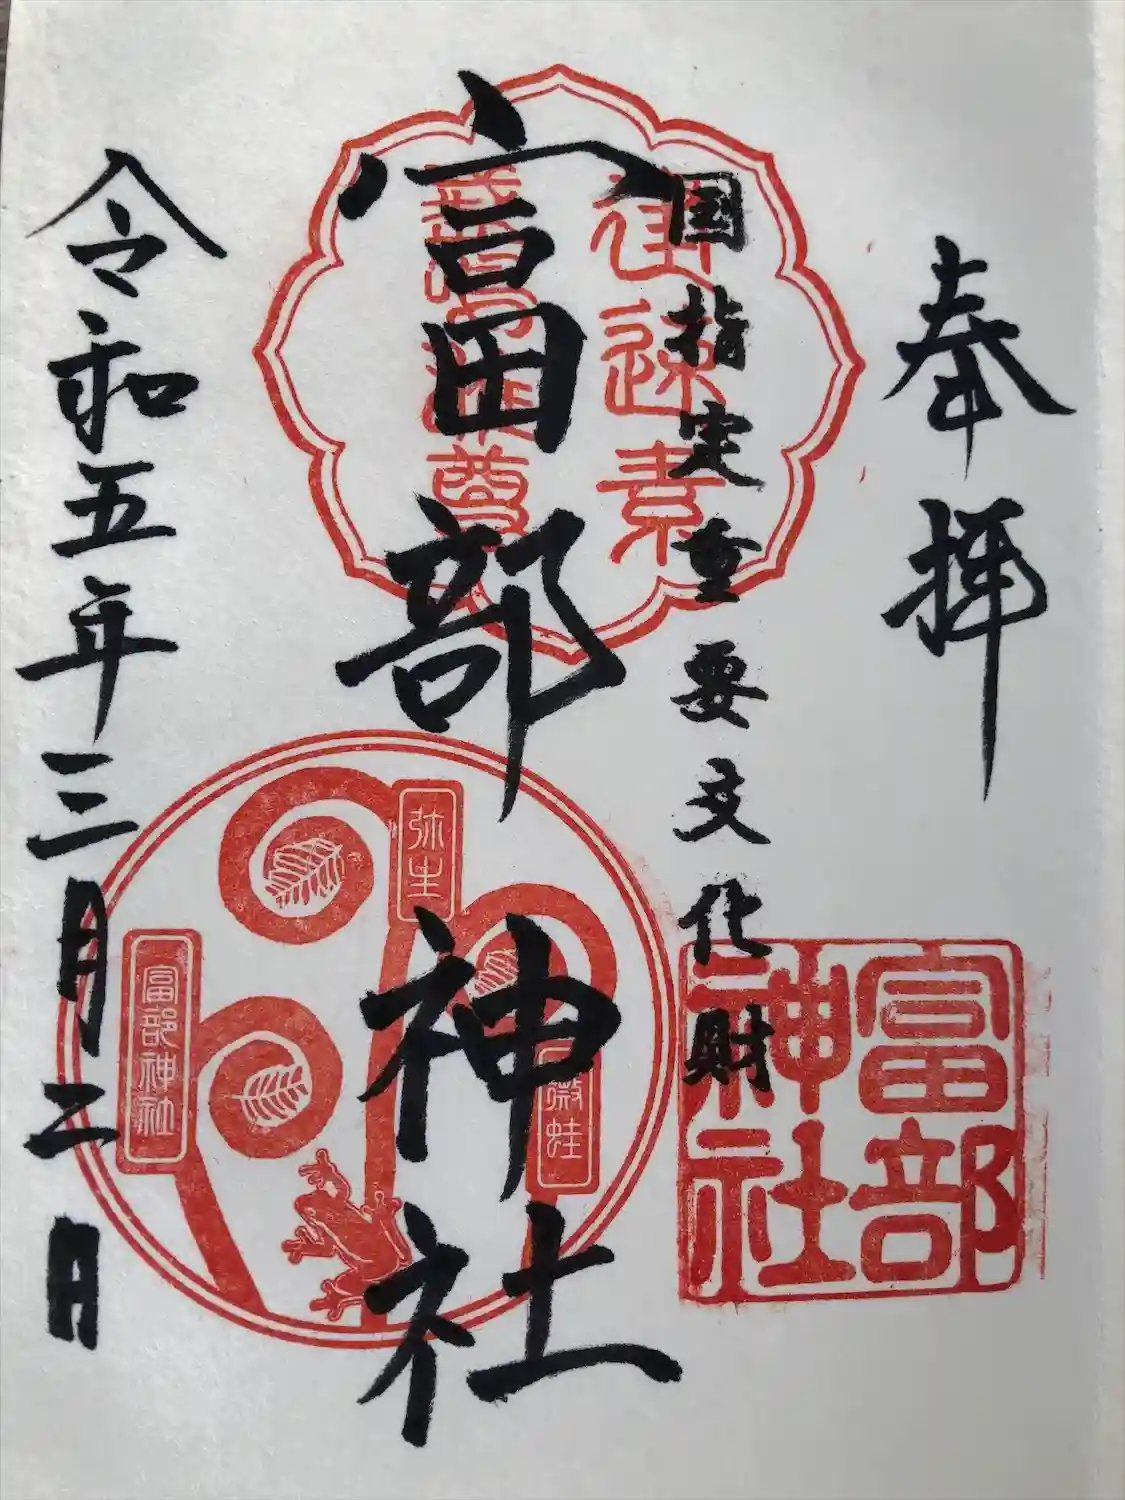 奉拝
国指定重要文化財
富部神社
令和五年三月二日
速素
尊
富部
神社
弥生
薇蛙
富部神社